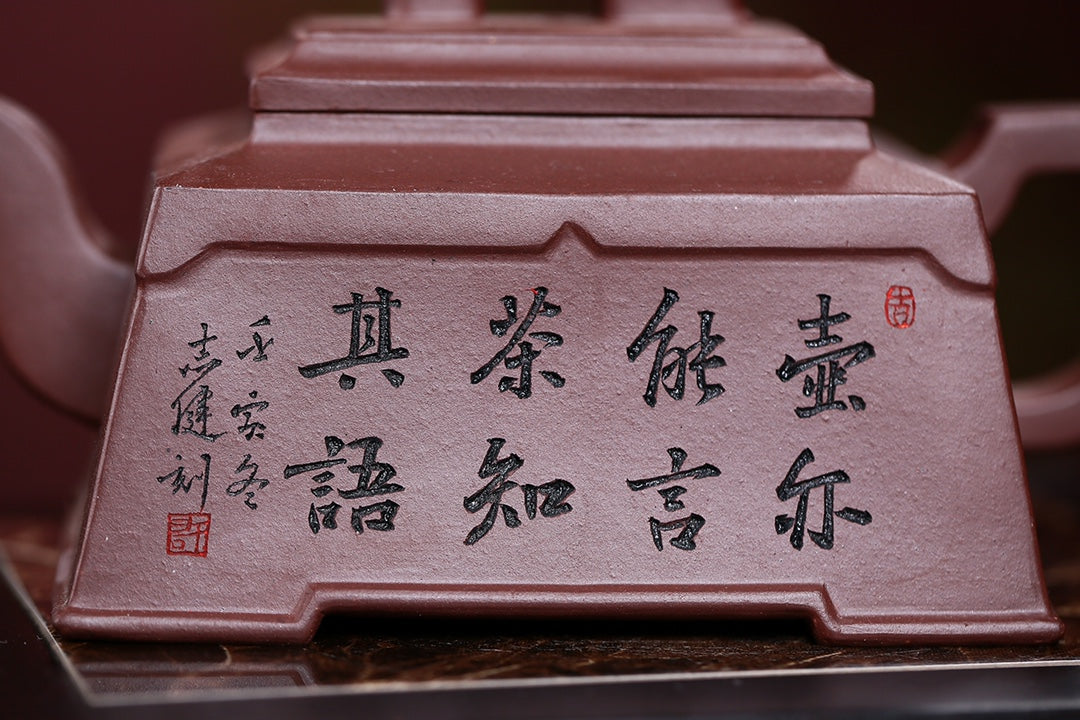 壺亦
能言
茶知
其語
壬寅冬
志健刻
許
吉